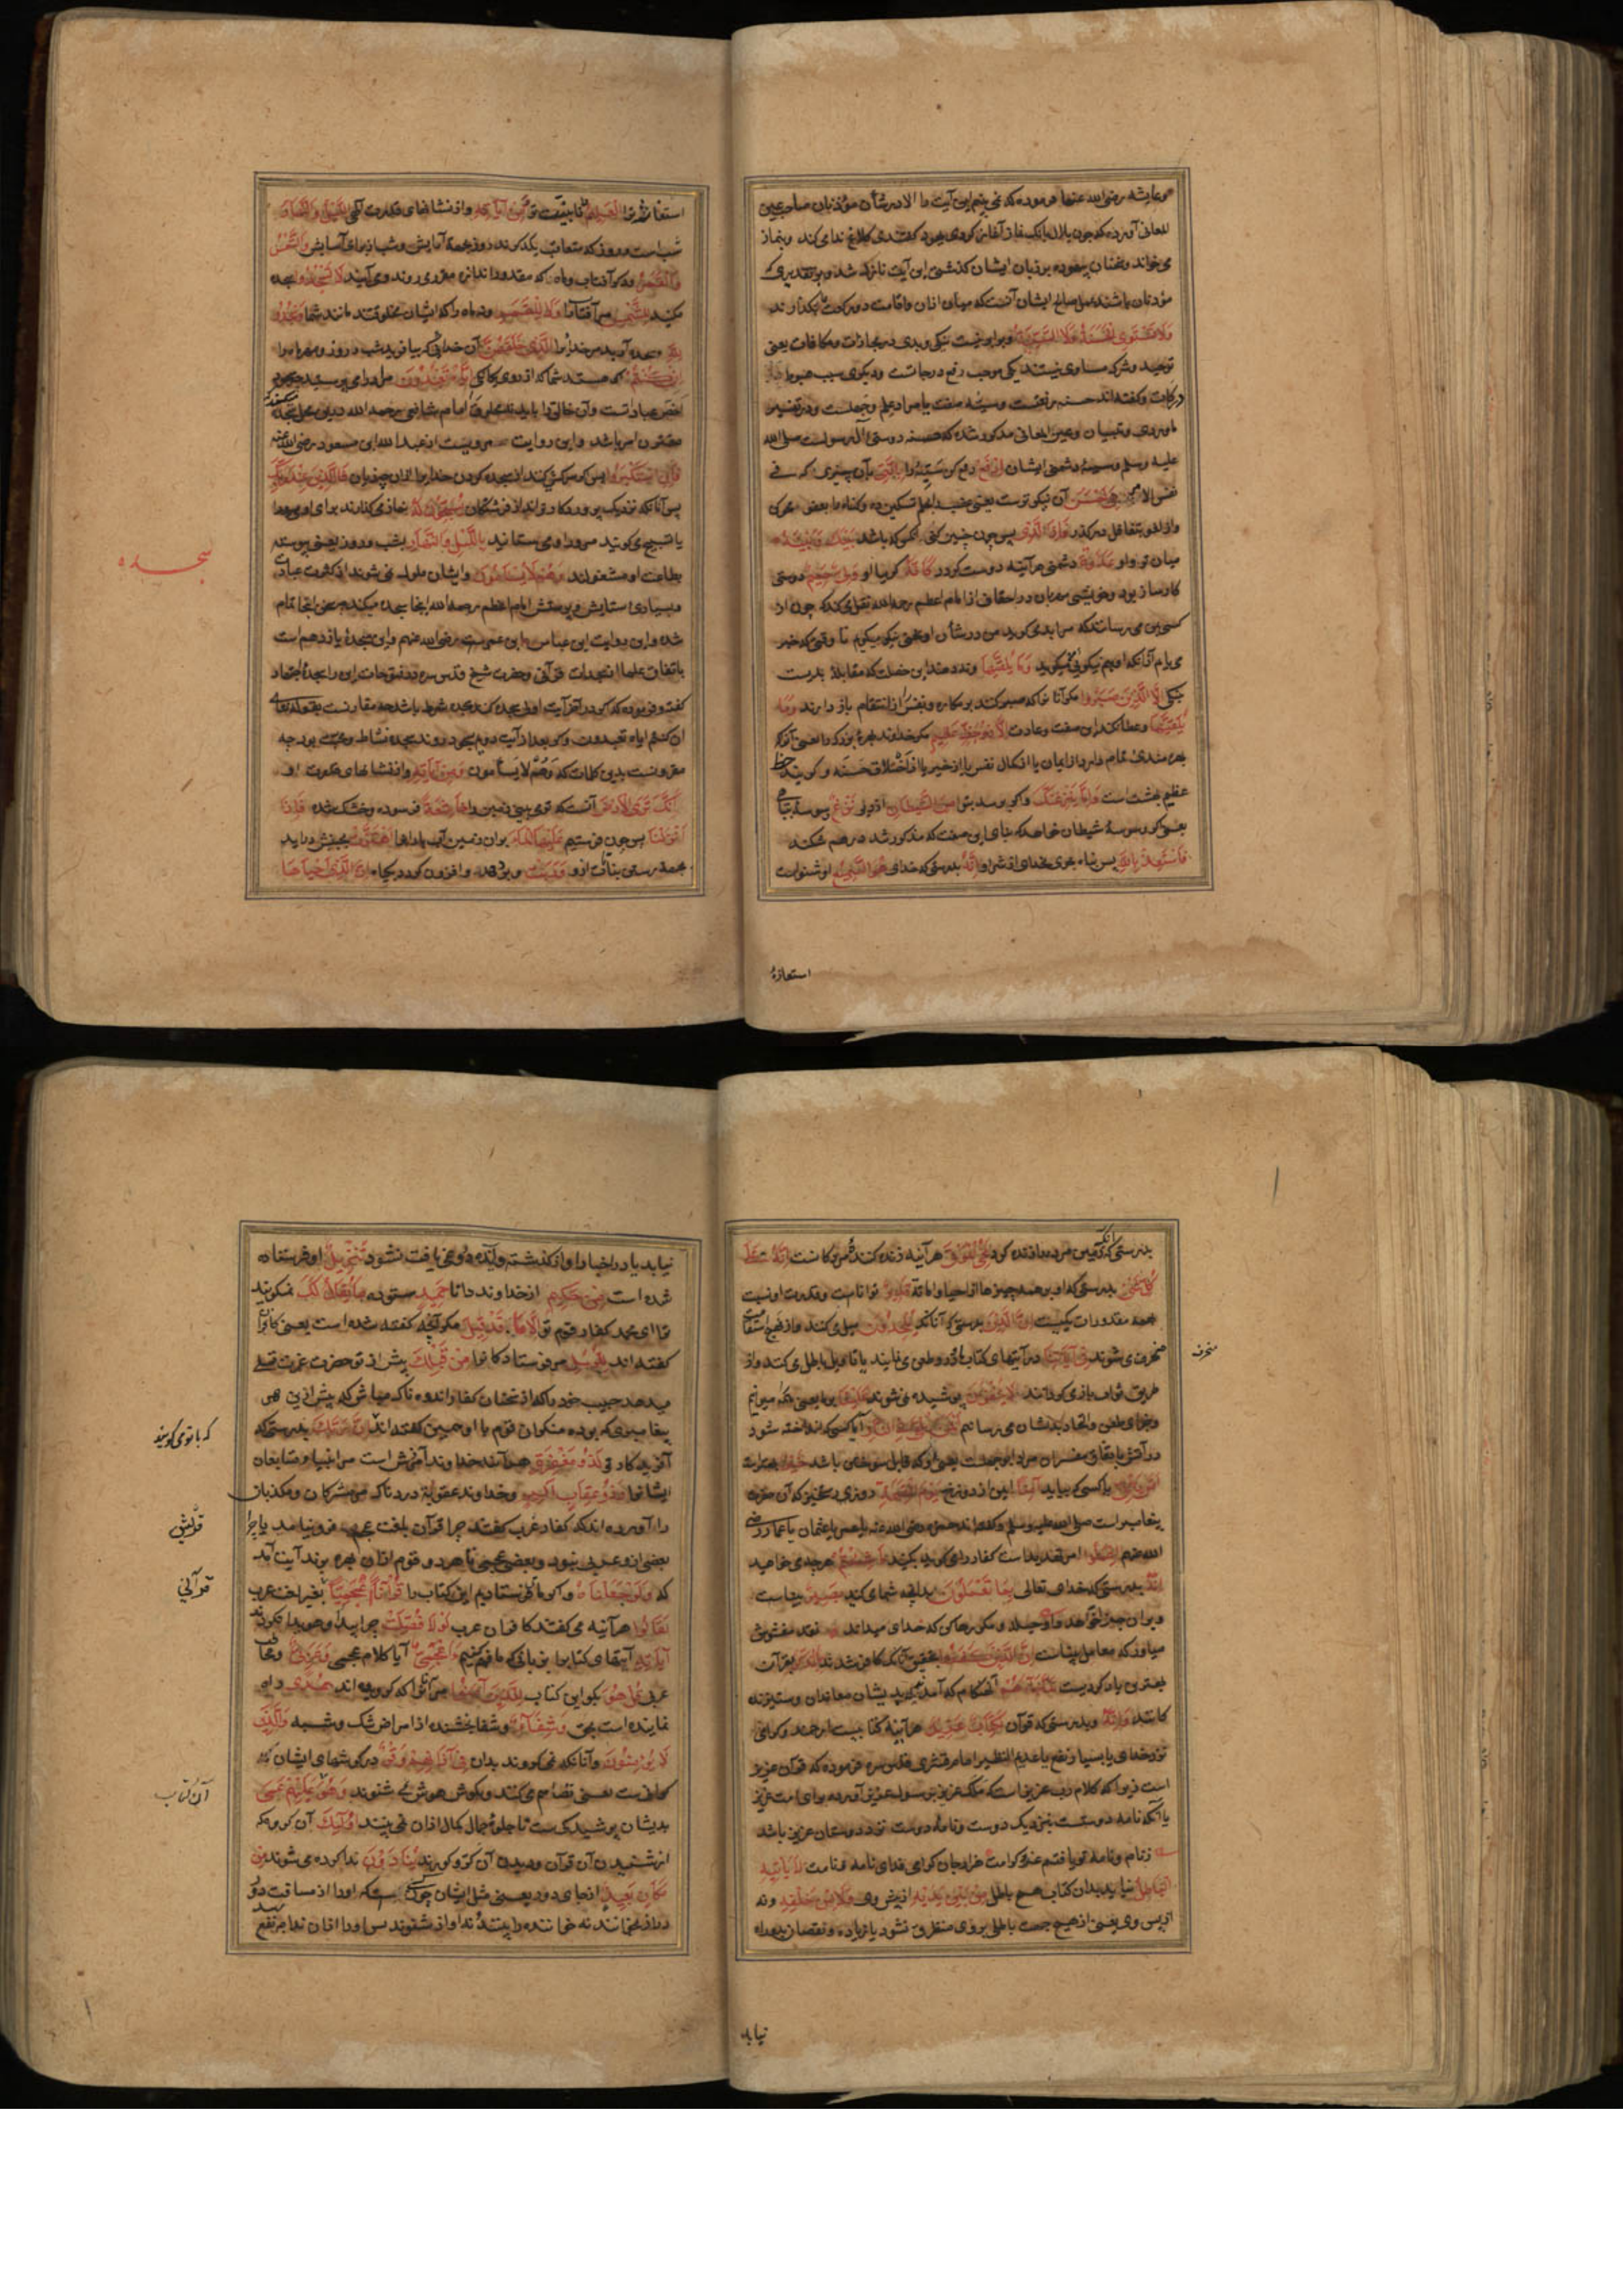 وعایشه رضی الله عنها فرموده که نمی بینم این آیت را الا در شأن مؤذنان صاحب عین
المعانی آورده که چون بلال بانک نماز آغاز کردی یهود گفتندی کلاغ ندا می کند و بنماز
می خواند وسخنان بیهوده بر زبان ایشان گذشتی این آیت نازل شد و بر تقدیری که
مؤذنان باشند عمل صالح ایشان آنست که میان اذان واقامت دو رکعت بگذارند
وَلَا تَسْتَوِی الْحَسَنَةُ وَلَا السَّيِّئَةُ و برابر نیست نیکی و بدی در مجازات ومکافات یعنی
توحید وشرک مساوی نیستند یکی موجب رفع درجاتست ودیگری سبب هبوط
درکات وگفته اند حسنه وسیئه صفت یا مراد علم وجهلست ودر تفسیر
ماوردی وتبیان وعین المعانی مذکور شده که حسنه دوستی آل رسولست صلی الله
علیه وسلم وسیئه دشمنی ایشان اِدْفَعْ دفع کن سَیِّئَه را بِالَّتِی بآن چیزی که فی
نفس الامر هِیَ اَحْسَنُ آن نیکوترست یعنی غضب را بحلم تسکین ده وگناه را بعفو محو کن
واز لغو بتغافل درگذر فَاِذَا الَّذِی پس چون چنین کنی آنکس که باشد بَیْنَکَ وَبَیْنَهُ
میان تو واو عَدَاوَةٌ دشمنی هر آینه دوست گردد کَاَنَّهُ گوییا او وَلِیٌّ حَمِیمٌ دوستی
کارساز بود وخویشی مهربان در احقاف از امام اعظم رحمه الله نقل می کند که چون از
کسی بمن می رسانند که مرا بد می گوید من در شأن او سخنی نیکو میگویم تا وقتی که خبر
می یابم که او هم نیکوئی میگوید وَمَا یُلَقّٰیهَا وندهند این خصلت که مقابلهٔ بدیست
بنیکی اِلَّا الَّذِینَ صَبَرُوا مگر آنان را که صبر کنند بر مکاره ونفس را از انتقام باز دارند وَمَا
یُلَقّٰیهَا وعطا نکند این صفت وعادت اِلَّا ذُو حَظٍّ عَظِیمٍ مگر خداوند بهرهٔ بزرگ را یعنی آنرا که
بهره مندی تمام دارد از ایمان یا از کمال نفس یا از خیر یا از اخلاق حسنه وگویند حظ
عظیم بهشت است وَاِمَّا یَنْزَغَنَّکَ واگر برسد بتو مِنَ الشَّیْطَانِ از دیو نَزْغٌ وسوسهٔ
یعنی گر وسوسهٔ شیطان خواهد که بنای این صفت که مذکور شد در هم شکند
فَاسْتَعِذْ بِاللهِ پس پناه بر بخدای از شر او اِنَّهُ بدرستی که خدای هُوَ السَّمِیعُ او شنواست
استعاذهٔ
استعاذهٔ ترا الْعَلِیمُ دانا بنیت تو وَمِنْ اٰیَاتِهِ واز نشانهای قدرت آلهی اللَّیْلُ وَالنَّهَارُ
شب است وروز که متعاقب یکدیگرند روز بجهة آرایش وشب از برای آسایش وَالشَّمْسُ
وَالْقَمَرُ ودیگر آفتاب وماه که بمقدور اندازه مقرر می روند ومی آیند لَا تَسْجُدُوا سجده
مکنید لِلشَّمْسِ مر آفتاب را وَلَا لِلْقَمَرِ ونه ماه را که ایشان مخلوقند مانند شما وَاسْجُدُوا
لِلّٰهِ وسجده آرید مر خدایرا الَّذِی خَلَقَهُنَّ آن خدائی که بیافرید شب وروز ومهر وماه را
اِنْ کُنْتُمْ اگر هستید شما که از روی یکتائی اِیَّاهُ تَعْبُدُونَ مر او را می پرستید سجود
اخص عباداتست وآن خالق را باید نه مخلوق را امام شافعی رحمه الله درین محل سجده میکند
مقترون امر باشد واین روایت مرویست از عبد الله ابن مسعود رضی الله عنه
فَاِنِ اسْتَکْبَرُوا پس اگر سرکشی کنند از سجده کردن خدایرا از آن چه زیان فَالَّذِینَ عِنْدَ رَبِّکَ
پس آنانکه نزدیک پروردگار تواند از فرشتگان یُسَبِّحُونَ لَهُ نماز می گذارند برای او
یا تسبیح می گویند مر او را ومی ستایند بِاللَّیْلِ وَالنَّهَارِ بشب وروز یعنی پیوسته
بطاعت او مشغولند وَهُمْ لَا یَسْاَمُونَ وایشان ملول نمی شوند از کثرت عبادت
وبسیاری ستایش وپرستش امام اعظم رحمه الله اینجا سجده میکند چه سخن اینجا تمام
شده واین روایت ابن عباس وابن عمرست رضی الله عنهم واین سجدهٔ یازدهم است
باتفاق علما از سجدات قرآنی وحضرت شیخ قدس سره در فتوحات این را سجدهٔ اجتهاد
گفته وفرموده که اگر در آخر آیت اولی سجده کند سجده شرط باشد چه مقارنست بقوله تعالی
ان کنتم ایاه تعبدون واگر بعد از آیت دوم بسجود روند سجده نشاط ومحبت بود چه
مقرونست بدین کلمات که وهم لا یسأمون وَمِنْ اٰیَاتِهِ واز نشانهای قدرت او
اَنَّکَ تَرَی الْاَرْضَ آنست که تو می بینی زمین را خَاشِعَةً فرسوده وخشک شده فَاِذَا
اَنْزَلْنَا پس چون فرستیم عَلَیْهَا الْمَاءَ بران زمین آب باران را اهْتَزَّتْ بجنبش در آید
بجهة رستن نبات ازو وَرَبَتْ وبردمد وافزون گردد گیاه اِنَّ الَّذِی اَحْیَاهَا
سجده
بدرستی که آنکس مرده را زنده کرد لَمُحْیِ الْمَوْتٰی هر آینه زنده کنندهٔ مردگانست اِنَّهُ عَلٰی
کُلِّ شَیْءٍ بدرستی که او بر همه چیزها از احیا واماته قَدِیرٌ تواناست وقدرت او نسبت
بهمه مقدورات یکیست اِنَّ الَّذِینَ بدرستی که آنانکه یُلْحِدُونَ میل می کنند واز نهج استقامت
منحرف می شوند فِی اٰیَاتِنَا در آیتهای کتاب ما ودر وطعن می نمایند یا تأویل باطل می کنند واز
طریق ثواب باز می گردانند لَا یَخْفَوْنَ پوشیده نمی شوند عَلَیْنَا بر ما یعنی همه را میدانیم
وجزای طعن والحاد بدیشان می رسانیم اَفَمَنْ یُلْقٰی فِی النَّارِ آیا کسی که انداخته شود
در آتش باتفاق مفسران مراد ابو جهلست یعنی او که قابل سوختن باشد خَیْرٌ بهترست
اَمْ مَنْ یَاْتِی یا کسی که بیاید اٰمِنًا ایمن از دوزخ یَوْمَ الْقِیٰمَةِ در روز رستخیز که آن حضرت
رسالت صلی الله علیه وسلم وگفته اند حمزه رضی الله عنه یا عمر یا عثمان یا عمار رضی
الله عنهم اِعْمَلُوا امر تهدیدست کفار را می گوید بکنید مَا شِئْتُمْ هر چه می خواهید
اِنَّهُ بدرستی که خدای تعالی بِمَا تَعْمَلُونَ بدانچه شما می کنید بَصِیرٌ بیناست
میاور که معامل بیناست اِنَّ الَّذِینَ کَفَرُوا بتحقیق آنانکه کافر شدند بِالذِّکْرِ بقرآن
بهترین یاد کردیست لَمَّا جَاءَهُمْ آن هنگام که آمد بدیشان معاندان وستیزنده
کانند وَاِنَّهُ وبدرستی که قرآن لَکِتَابٌ عَزِیزٌ هر آینه کتابیست ارجمند وگرامی
نزد خدای یا بسیار نفع یا عدیم النظیر امام قشیری قدس سره فرموده که قرآن عزیز
است زیرا که کلام رب عزیزست که ملک عزیز برسول عزیز آورده برای امت عزیز
یا آنکه نامه دوستست بنزدیک دوست ونامهٔ دوست نزد دوستان عزیز باشد
ز نام ونامه تو یافتم عز وکرامت هزار جان گرامی فدای نامه ونامت لَا یَاْتِیهِ
الْبَاطِلُ نیاید بدان کتاب هیچ باطل مِنْ بَیْنِ یَدَیْهِ از پیش وی وَلَا مِنْ خَلْفِهِ ونه
از پس وی یعنی از هیچ جهت باطل بروی متطرق نشود یا زیاده ونقصان بدو راه
منحرف
نیابد
نیابد یا در اخبار او از گذشته وآینده دروغ یافت نشود تَنْزِیلٌ او فرستاده
شده است مِنْ حَکِیمٍ از خداوند دانا حَمِیدٍ ستوده مَا یُقَالُ لَکَ نمی گویند
ترا ای محمد کفار قوم تو اِلَّا مَا قَدْ قِیلَ مگر آنچه گفته شده است یعنی کافران
گفته اند لِلرُّسُلِ مر فرستادگانرا مِنْ قَبْلِکَ پیش از تو حضرت عزت تسلی
میدهد حبیب خود را که از سخنان کفار اندوهناک مباش که پیش ازین هر
پیغامبری که بوده منکران قوم با او همین گفته اند اِنَّ رَبَّکَ بدرستی که
آفریدگار تو لَذُو مَغْفِرَةٍ هر آینه خداوند آمرزش است مر انبیا ومتابعان
ایشانرا وَذُو عِقَابٍ اَلِیمٍ وخداوند عقوبة دردناک مر مشرکان ومکذبان
را آورده اند که کفار عرب گفتند چرا قرآن بلغت عجم فرو نیامد یا چرا
بعضی ازو عربی نبود وبعضی عجمی تا هر دو قوم از آن بهره برند آیت آمد
که وَلَوْ جَعَلْنَاهُ واگر ما فرستادیم این کتاب را قُرْاٰنًا اَعْجَمِیًّا بغیر لغت عرب
لَقَالُوا هر آینه می گفتند کافران عرب لَوْلَا فُصِّلَتْ چرا پیدا وهویدا نکردند
اٰیَاتُهُ آیتهای کتاب را بزبانی که ما فهم کنیم ءَاَعْجَمِیٌّ آیا کلام عجمی وَعَرَبِیٌّ ومخاطب
عربی قُلْ هُوَ بگو این کتاب لِلَّذِینَ اٰمَنُوا مر آنرا که گرویده اند هُدًی راه
نماینده است بحق وَشِفَاءٌ وشفا بخشنده از امراض شک وشبه وَالَّذِینَ
لَا یُؤْمِنُونَ وآنانکه نمی گروند بدان فِی اٰذَانِهِمْ وَقْرٌ در گوشهای ایشان
گرانیست یعنی تصامم می کنند وبگوش هوش نمی شنوند وَهُوَ عَلَیْهِمْ عَمًی
بدیشان پوشیدگیست تا جلوهٔ جمال کمال از آن نمی بینند اُولٰئِکَ آن گروه که
از شنیدن آن قرآن ودیدن آن کر وکورند یُنَادَوْنَ ندا کرده می شوند مِنْ
مَکَانٍ بَعِیدٍ از جای دور یعنی مثل ایشان چون کسی است که او را از مسافت دور
دراز بخوانند نه خواننده را بیند ونه آواز شنوند پس او را از آن ندا چه نفع رسد
که با تو می گویند
قریش
قرآنی
آن کتاب